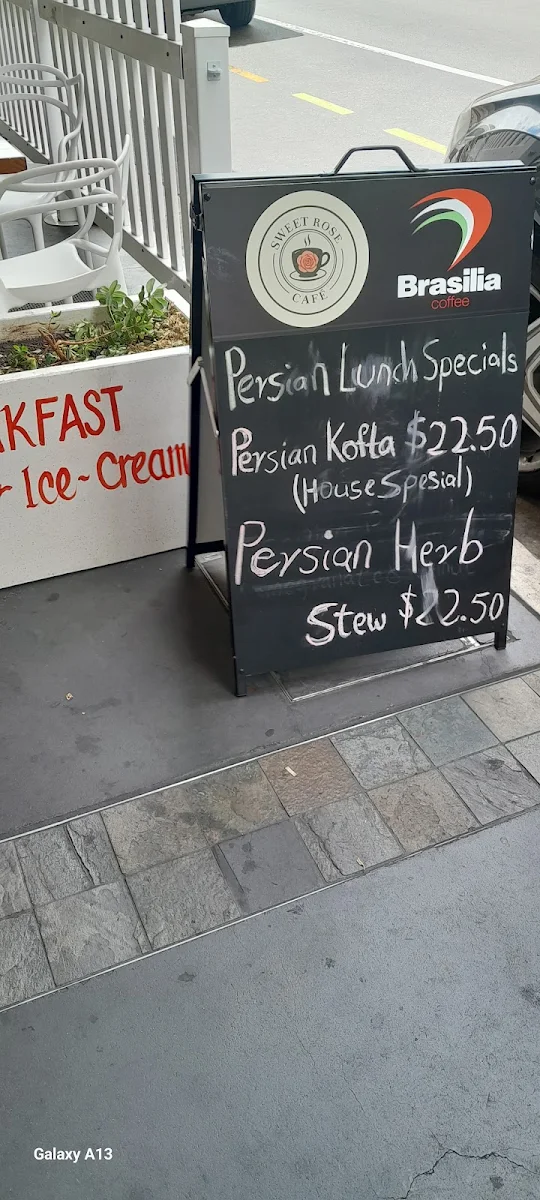 SWEET ROSE
CAFE
Brasilia
coffee
Persian Lunch Specials
Persian Kofta $22.50
(House Spesial)
Persian Herb
Stew $22.50
KFAST
r Ice-Cream
Galaxy A13